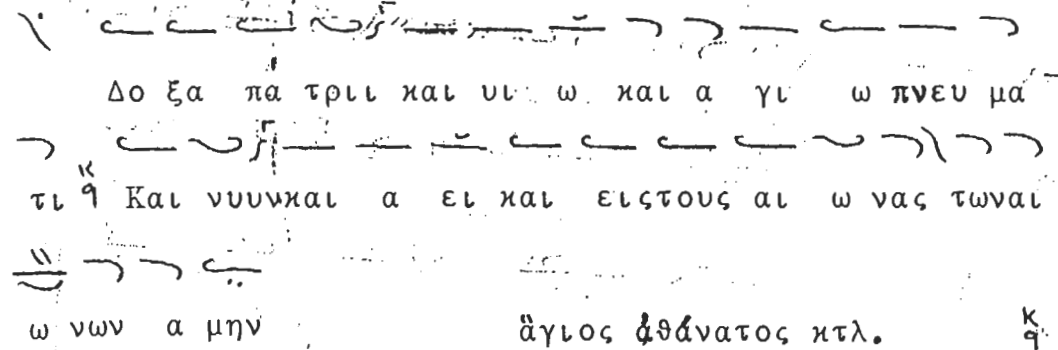 Δο ξα πα τριι και υι ω και α γι ω πνευ μα
τι κ q Και νυυνκαι α ει και ειςτους αι ω νας τωναι
ω νων α μην ἅγιος ἀθάνατος κτλ. κ q